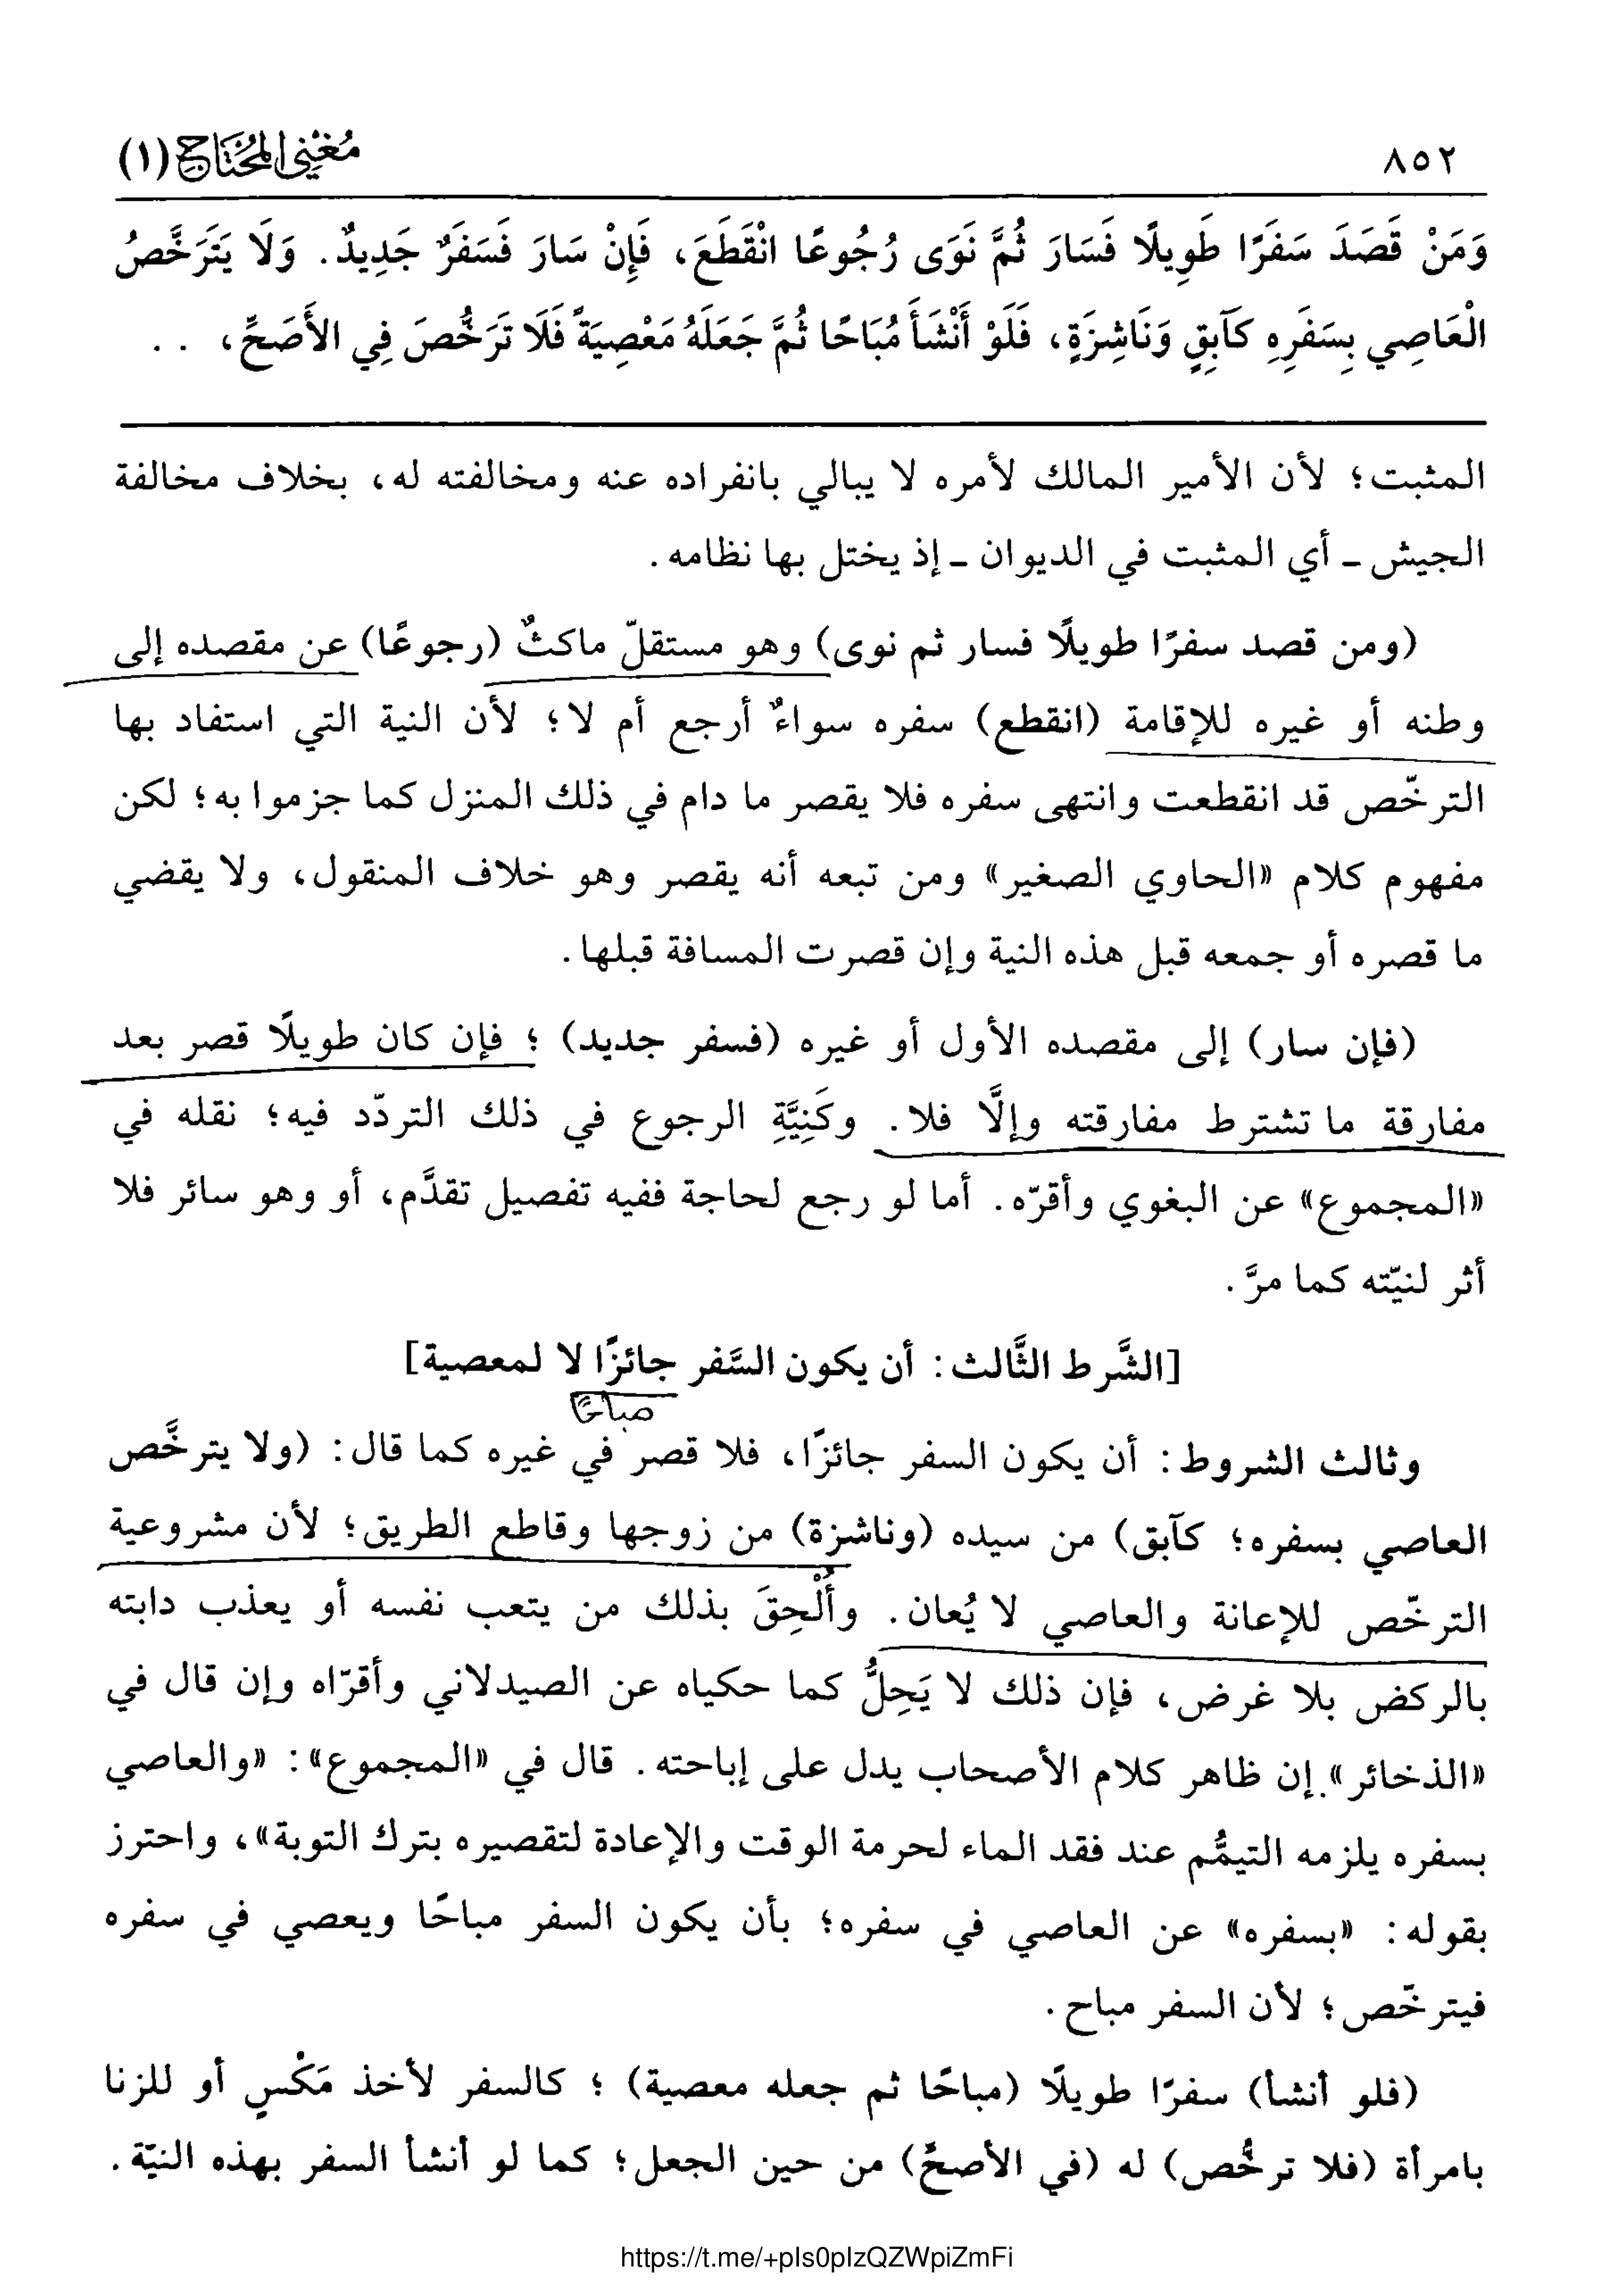 ٨٥٢
مُغْنِي المُحْتَاج (١)
وَمَنْ قَصَدَ سَفَرًا طَوِيلًا فَسَارَ ثُمَّ نَوَى رُجُوعًا انْقَطَعَ، فَإِنْ سَارَ فَسَفَرٌ جَدِيدٌ. وَلَا يَتَرَخَّصُ
الْعَاصِي بِسَفَرِهِ كَآبِقٍ وَنَاشِزَةٍ، فَلَوْ أَنْشَأَ مُبَاحًا ثُمَّ جَعَلَهُ مَعْصِيَةً فَلَا تَرَخُّصَ فِي الأَصَحِّ، . .
المثبت؛ لأن الأمير المالك لأمره لا يبالي بانفراده عنه ومخالفته له، بخلاف مخالفة
الجيش ـ أي المثبت في الديوان ـ إذ يختل بها نظامه.
(ومن قصد سفرًا طويلًا فسار ثم نوى) وهو مستقلّ ماكثٌ (رجوعًا) عن مقصده إلى
وطنه أو غيره للإقامة (انقطع) سفره سواءٌ أرجع أم لا؛ لأن النية التي استفاد بها
الترخّص قد انقطعت وانتهى سفره فلا يقصر ما دام في ذلك المنزل كما جزموا به؛ لكن
مفهوم كلام «الحاوي الصغير» ومن تبعه أنه يقصر وهو خلاف المنقول، ولا يقضي
ما قصره أو جمعه قبل هذه النية وإن قصرت المسافة قبلها.
(فإن سار) إلى مقصده الأول أو غيره (فسفر جديد)؛ فإن كان طويلًا قصر بعد
مفارقة ما تشترط مفارقته وإلَّا فلا. وكَنِيَّةِ الرجوع في ذلك التردّد فيه؛ نقله في
«المجموع» عن البغوي وأقرّه. أما لو رجع لحاجة ففيه تفصيل تقدَّم، أو وهو سائر فلا
أثر لنيّته كما مرَّ.
[الشَّرط الثَّالث: أن يكون السَّفر جائزًا لا لمعصية]
مباحًا
وثالث الشروط: أن يكون السفر جائزًا، فلا قصر في غيره كما قال: (ولا يترخَّص
العاصي بسفره؛ كآبق) من سيده (وناشزة) من زوجها وقاطع الطريق؛ لأن مشروعية
الترخّص للإعانة والعاصي لا يُعان. وأُلْحِقَ بذلك من يتعب نفسه أو يعذب دابته
بالركض بلا غرض، فإن ذلك لا يَحِلُّ كما حكياه عن الصيدلاني وأقرّاه وإن قال في
«الذخائر» إن ظاهر كلام الأصحاب يدل على إباحته. قال في «المجموع»: «والعاصي
بسفره يلزمه التيمُّم عند فقد الماء لحرمة الوقت والإعادة لتقصيره بترك التوبة»، واحترز
بقوله: «بسفره» عن العاصي في سفره؛ بأن يكون السفر مباحًا ويعصي في سفره
فيترخّص؛ لأن السفر مباح.
(فلو أنشأ) سفرًا طويلًا (مباحًا ثم جعله معصية)؛ كالسفر لأخذ مَكْسٍ أو للزنا
بامرأة (فلا ترخُّص) له (في الأصحِّ) من حين الجعل؛ كما لو أنشأ السفر بهذه النيّة.
https://t.me/+pIs0pIzQZWpiZmFi